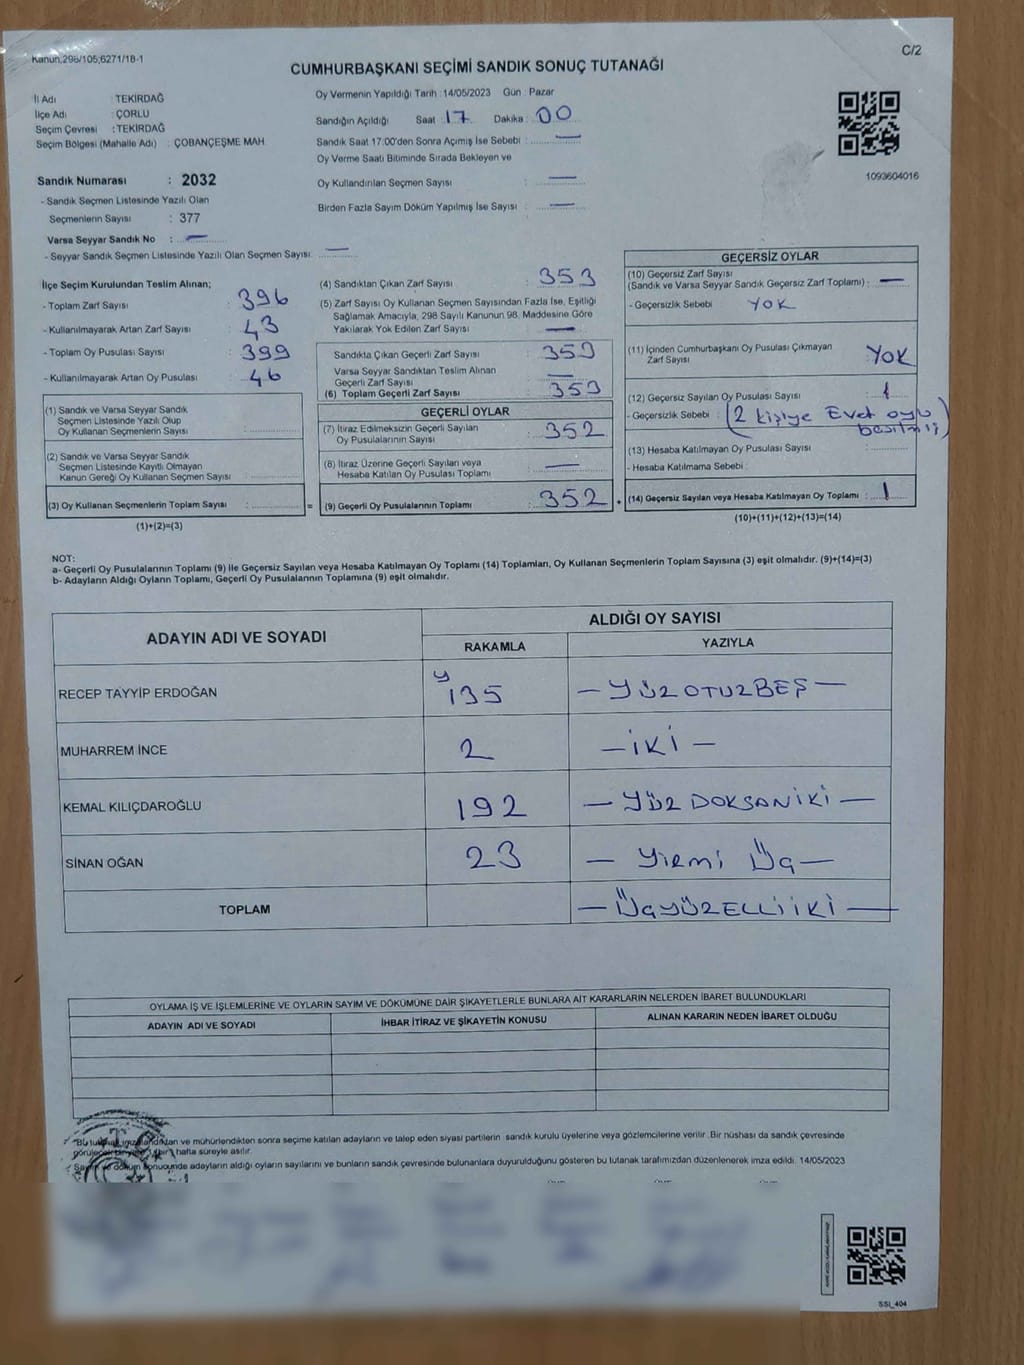 Kanun.298/105;6271/18-1
C/2
CUMHURBAŞKANI SEÇİMİ SANDIK SONUÇ TUTANAĞI
İl Adı : TEKİRDAĞ
İlçe Adı : ÇORLU
Seçim Çevresi : TEKİRDAĞ
Seçim Bölgesi (Mahalle Adı) : ÇOBANÇEŞME MAH
Sandık Numarası : 2032
- Sandık Seçmen Listesinde Yazılı Olan
Seçmenlerin Sayısı : 377
Varsa Seyyar Sandık No : —
- Seyyar Sandık Seçmen Listesinde Yazılı Olan Seçmen Sayısı: —
Oy Vermenin Yapıldığı Tarih :14/05/2023 Gün : Pazar
Sandığın Açıldığı Saat : 17 Dakika : 00
Sandık Saat 17:00'den Sonra Açımış İse Sebebi : —
Oy Verme Saati Bitiminde Sırada Bekleyen ve
Oy Kullandırılan Seçmen Sayısı : —
Birden Fazla Sayım Döküm Yapılmış İse Sayısı : —
1093604016
İlçe Seçim Kurulundan Teslim Alınan;
- Toplam Zarf Sayısı : 396
- Kullanılmayarak Artan Zarf Sayısı : 43
- Toplam Oy Pusulası Sayısı : 399
- Kullanılmayarak Artan Oy Pusulası : 46
(1) Sandık ve Varsa Seyyar Sandık
Seçmen Listesinde Yazılı Olup
Oy Kullanan Seçmenlerin Sayısı :
(2) Sandık ve Varsa Seyyar Sandık
Seçmen Listesinde Kayıtlı Olmayan
Kanun Gereği Oy Kullanan Seçmen Sayısı :
(3) Oy Kullanan Seçmenlerin Toplam Sayısı :
(1)+(2)=(3)
(4) Sandıktan Çıkan Zarf Sayısı : 353
(5) Zarf Sayısı Oy Kullanan Seçmen Sayısından Fazla İse, Eşitliği
Sağlamak Amacıyla, 298 Sayılı Kanunun 98. Maddesine Göre
Yakılarak Yok Edilen Zarf Sayısı : —
Sandıkta Çıkan Geçerli Zarf Sayısı : 353
Varsa Seyyar Sandıktan Teslim Alınan
Geçerli Zarf Sayısı : —
(6) Toplam Geçerli Zarf Sayısı : 353
GEÇERLİ OYLAR
(7) İtiraz Edilmeksizin Geçerli Sayılan
Oy Pusulalarının Sayısı : 352
(8) İtiraz Üzerine Geçerli Sayılan veya
Hesaba Katılan Oy Pusulası Toplamı : —
= (9) Geçerli Oy Pusulalarının Toplamı : 352 +
GEÇERSİZ OYLAR
(10) Geçersiz Zarf Sayısı
(Sandık ve Varsa Seyyar Sandık Geçersiz Zarf Toplamı) : —
- Geçersizlik Sebebi : YOK
(11) İçinden Cumhurbaşkanı Oy Pusulası Çıkmayan
Zarf Sayısı : YOK
(12) Geçersiz Sayılan Oy Pusulası Sayısı : 1
- Geçersizlik Sebebi : (2 kişiye Evet oyu
basılmış)
(13) Hesaba Katılmayan Oy Pusulası Sayısı :
- Hesaba Katılmama Sebebi :
(14) Geçersiz Sayılan veya Hesaba Katılmayan Oy Toplamı : 1
(10)+(11)+(12)+(13)=(14)
NOT:
a- Geçerli Oy Pusulalarının Toplamı (9) ile Geçersiz Sayılan veya Hesaba Katılmayan Oy Toplamı (14) Toplamları, Oy Kullanan Seçmenlerin Toplam Sayısına (3) eşit olmalıdır. (9)+(14)=(3)
b- Adayların Aldığı Oyların Toplamı, Geçerli Oy Pusulalarının Toplamına (9) eşit olmalıdır.
ADAYIN ADI VE SOYADI
ALDIĞI OY SAYISI
RAKAMLA YAZIYLA
RECEP TAYYİP ERDOĞAN 135 — YÜZOTUZBEŞ —
MUHARREM İNCE 2 — İKİ —
KEMAL KILIÇDAROĞLU 192 — YÜZ DOKSANİKİ —
SİNAN OĞAN 23 — Yirmi Üç —
TOPLAM — ÜÇYÜZELLİİKİ —
OYLAMA İŞ VE İŞLEMLERİNE VE OYLARIN SAYIM VE DÖKÜMÜNE DAİR ŞİKAYETLERLE BUNLARA AİT KARARLARIN NELERDEN İBARET BULUNDUKLARI
ADAYIN ADI VE SOYADI İHBAR İTİRAZ VE ŞİKAYETİN KONUSU ALINAN KARARIN NEDEN İBARET OLDUĞU
ve mühürlendikten sonra seçime katılan adayların ve talep eden siyasi partilerin sandık kurulu üyelerine veya gözlemcilerine verilir. Bir nüshası da sandık çevresinde
hafta süreyle asılır.
adayların aldığı oyların sayılarını ve bunların sandık çevresinde bulunanlara duyurulduğunu gösteren bu tutanak tarafımızdan düzenlenerek imza edildi. 14/05/2023
SSI_404